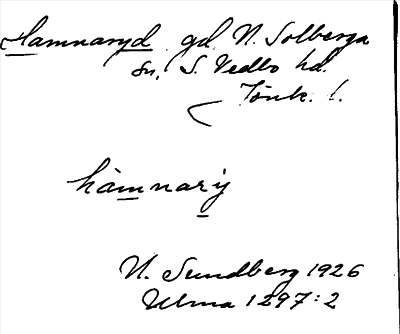 Hamnaryd gd. N. Solberga
sn, S. Vedbo hd.
Jönk. l.
hàmnarỳ
N. Sundberg 1926
Ulma 1297:2